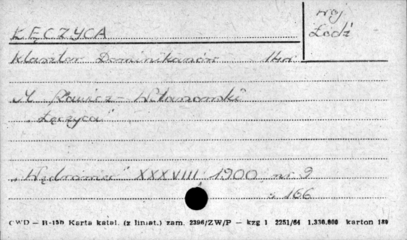 ŁĘCZYCA
woj
Łódź
Klasztor Dominikanów 14w
M. Rawicz-Witanowski
"Łęczyca"
"Wędrowiec" XXXVIII 1900 nr 9
s 166
CWD — B-15b Karta katal. (z liniat.) zam. 2396/ZW/P — kzg 1 2251/64 1.336.000 karton